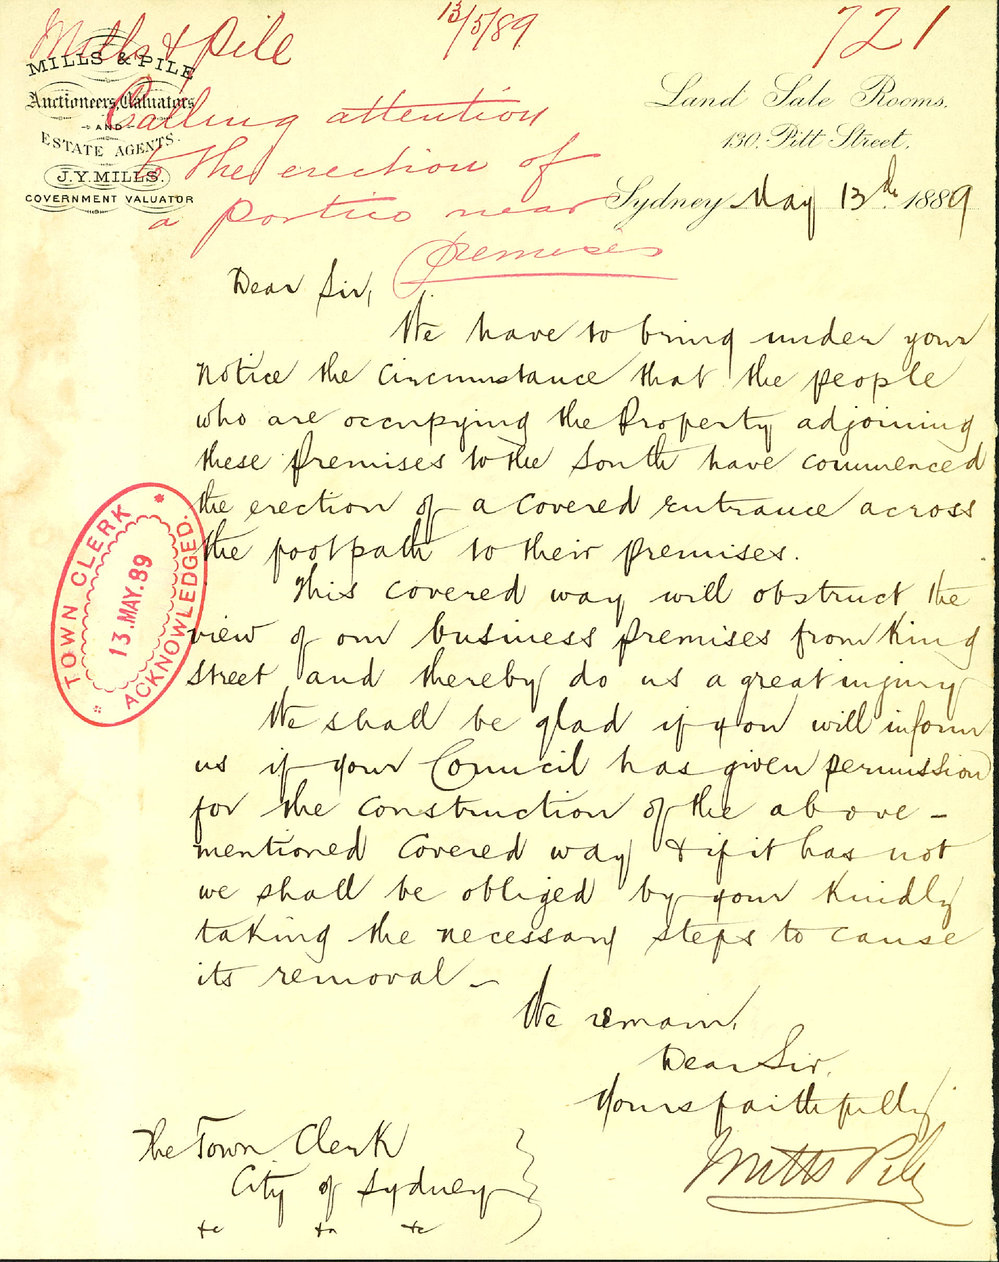 13/5/89
721
Mills & Pile
Calling attention
to the erection of
a portico near
premises
MILLS & PILE
Auctioneers, Valuators
AND
ESTATE AGENTS.
J.Y. MILLS.
GOVERNMENT VALUATOR
Land Sale Rooms.
130. Pitt Street.
Sydney May 13th 1889
Dear Sir,
We have to bring under your
notice the circumstance that the people
who are occupying the Property adjoining
these premises to the South have commenced
the erection of a covered entrance across
the footpath to their premises.
This covered way will obstruct the
view of our business premises from King
street and thereby do us a great injury
We shall be glad if you will inform
us if your Council has given permission
for the construction of the above-
mentioned Covered way & if it has not
we shall be obliged by your kindly
taking the necessary steps to cause
its removal -
We remain,
Dear Sir,
Yours faithfully
Mills & Pile
The Town Clerk
City of Sydney
&c &c &c
TOWN CLERK
13. MAY. 89
ACKNOWLEDGED.